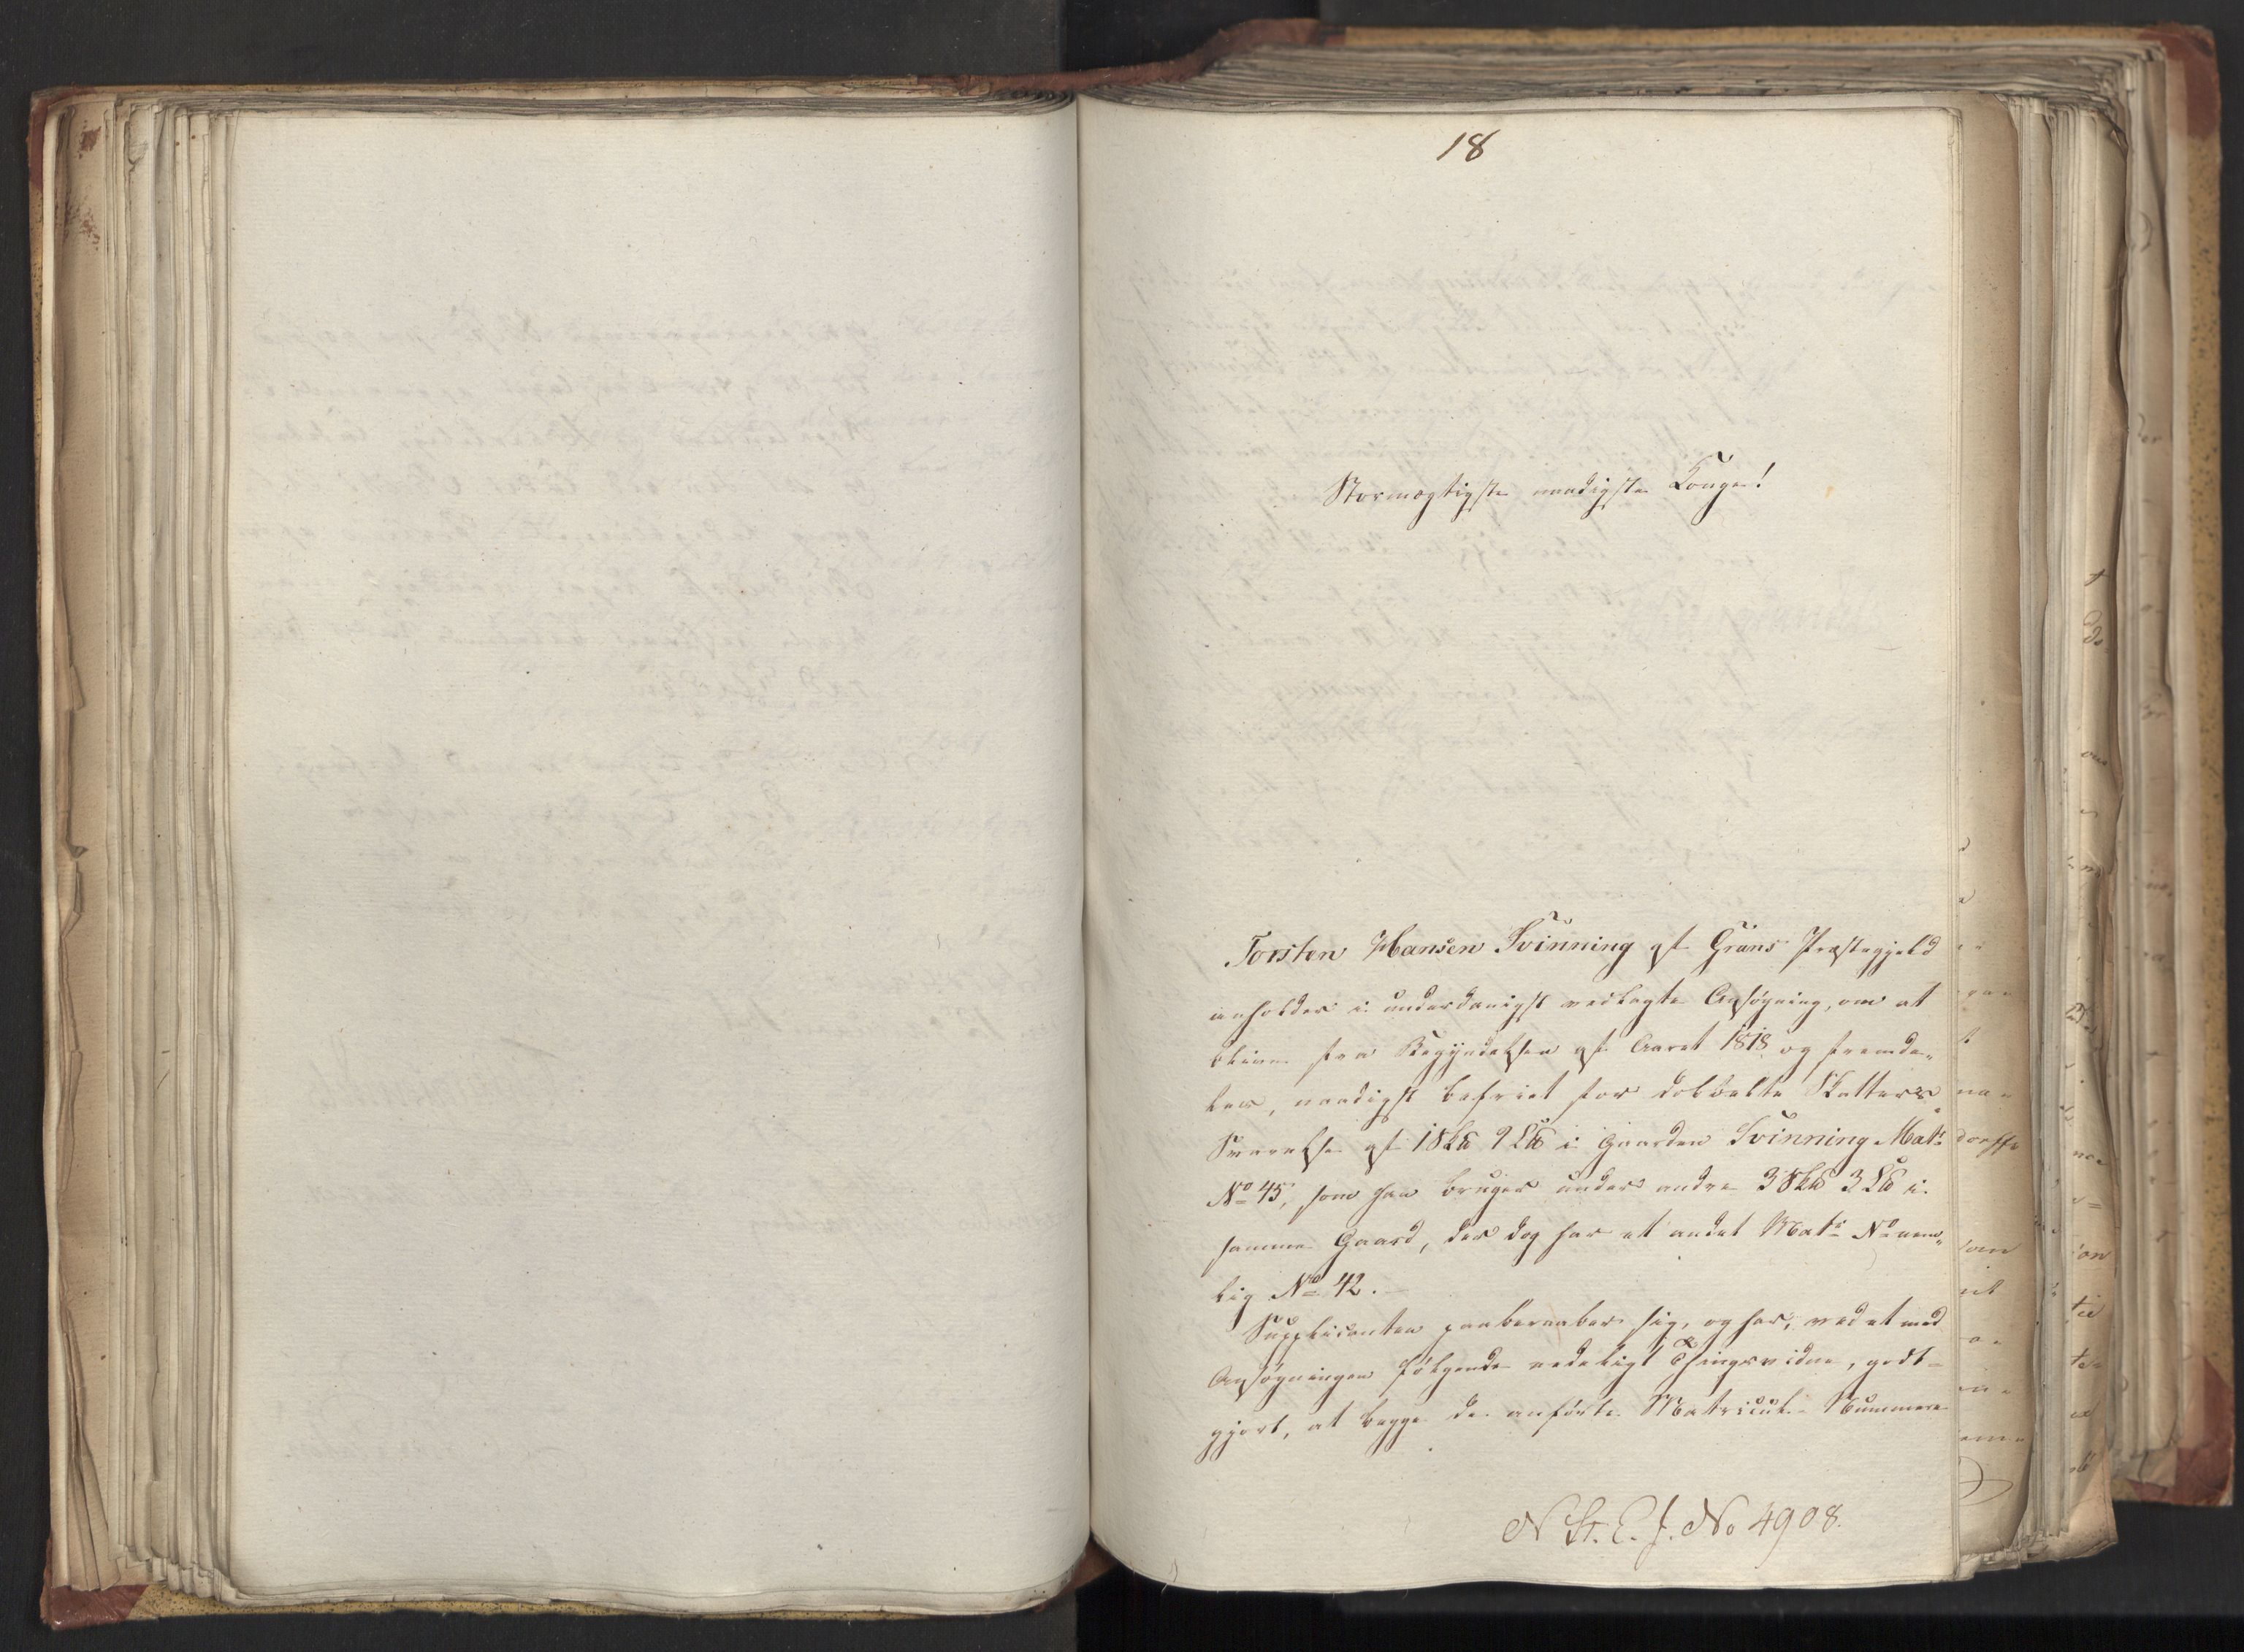 18
Stormægtigste naadigste Konge!
Torsten Hansen Svinning af Grans Præstegjeld
anholder i underdanigst vedlagte Ansøgning, om at
blive fra Begyndelsen af Aaret 1818 og fremde„
les, naadigst befriet for dobbelte Skatters„
Svarelse af 1 Sk℔ 9 L℔ i Gaarden Svinning Matr
No 45, som han bruger under andre 3 Sk℔ 3 L℔ i
samme Gaard, der dog har et andet Matr No nem„
lig No 42.
Supplicanten paaberaaber sig, og har, ved et med
Ansøgningen følgende edeligt Thingsvidne, godt-
gjort, at begge de anførte Matricul-Nummere
N. St. E. J. No 4908.